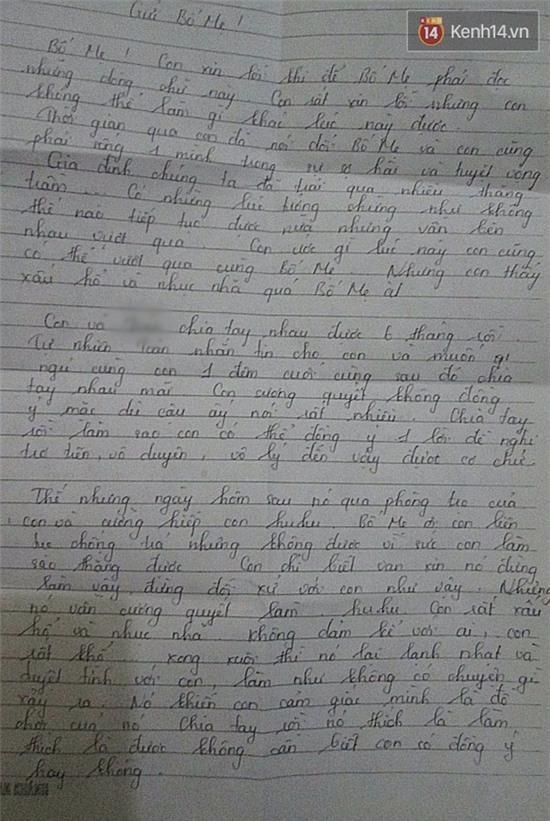 14 Kenh14.vn
Gửi Bố Mẹ!
Bố Mẹ! Con xin lỗi khi để Bố Mẹ phải đọc
những dòng chữ này. Con rất xin lỗi nhưng con
không thể làm gì khác lúc này được.
Thời gian qua con đã nói dối Bố Mẹ và con cũng
phải sống 1 mình trong sự sợ hãi và tuyệt vọng
Gia đình chúng ta đã trải qua nhiều thăng
trầm... Có những lúc tưởng chừng như không
thể nào tiếp tục được nữa nhưng vẫn bên
nhau vượt qua. Con ước gì lúc này con cũng
có thể vượt qua cùng Bố Mẹ. Nhưng con thấy
xấu hổ và nhục nhã quá Bố Mẹ à!
Con và chia tay nhau được 6 tháng rồi.
Tự nhiên nhắn tin cho con và muốn
ngủ cùng con 1 đêm cuối cùng sau đó chia
tay nhau mãi. Con cương quyết không đồng
ý mặc dù cậu ấy nói rất nhiều. Chia tay
rồi làm sao con có thể đồng ý 1 lời đề nghị
trơ trẽn, vô duyên, vô lý đến vậy được cơ chứ.
Thế nhưng ngày hôm sau nó qua phòng trọ của
con và cưỡng hiếp con huhu. Bố Mẹ ơi con liên
tục chống trả nhưng không được vì sức con làm
sao thắng được. Con chỉ biết van xin nó đừng
làm vậy, đừng đối xử với con như vậy. Nhưng
nó vẫn cương quyết làm. huhu Con rất xấu
hổ và nhục nhã không dám kể với ai, con
rất khổ. xong xuôi thì nó lại lạnh nhạt và
tuyệt tình với con, làm như không có chuyện gì
xảy ra. Nó khiến con cảm giác mình là đồ
chơi của nó. Chia tay rồi nó thích là làm
thích là được không cần biết con có đồng ý
hay không.